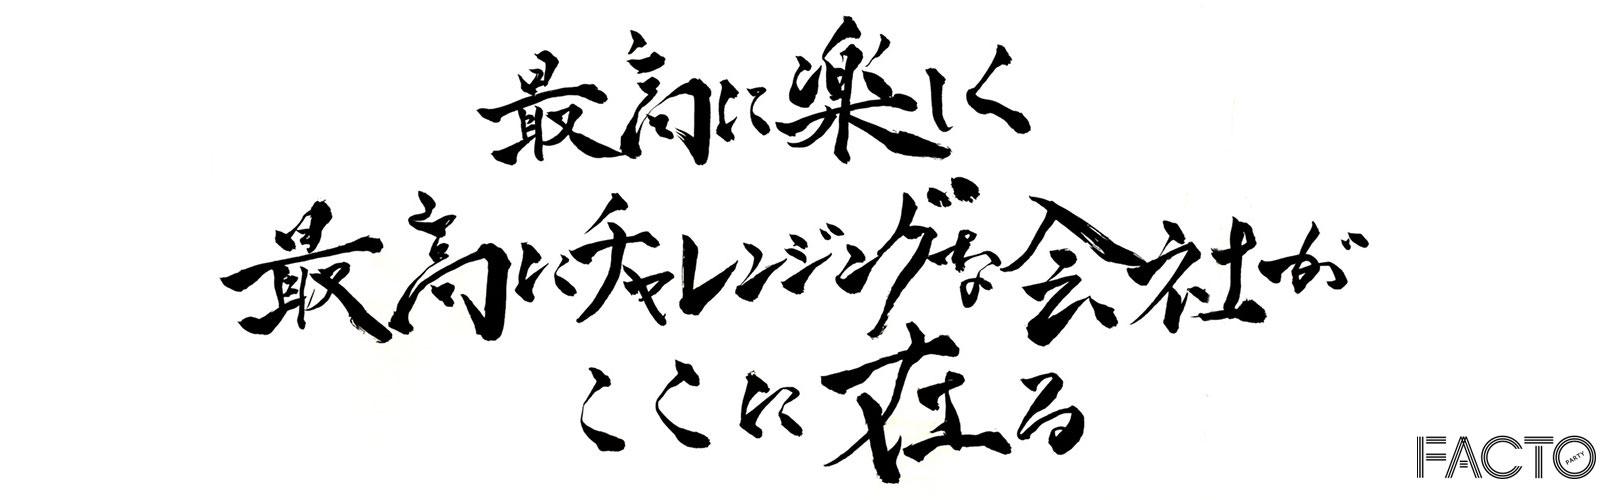 最高に楽しく
最高にチャレンジングな会社が
ここに在る
FACTO
PARTY